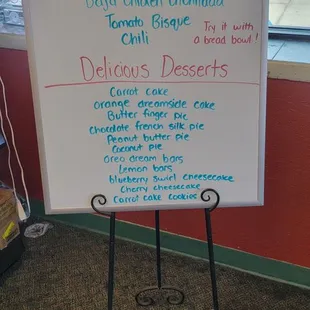 Baja Chicken Enchilada
Tomato Bisque
Chili
Try it with
a bread bowl!
Delicious Desserts
Carrot cake
orange dreamside cake
Butter finger pie
Chocolate french silk pie
Peanut butter pie
Coconut pie
oreo dream bars
Lemon bars
blueberry swirl cheesecake
Cherry cheesecake
Carrot cake cookies